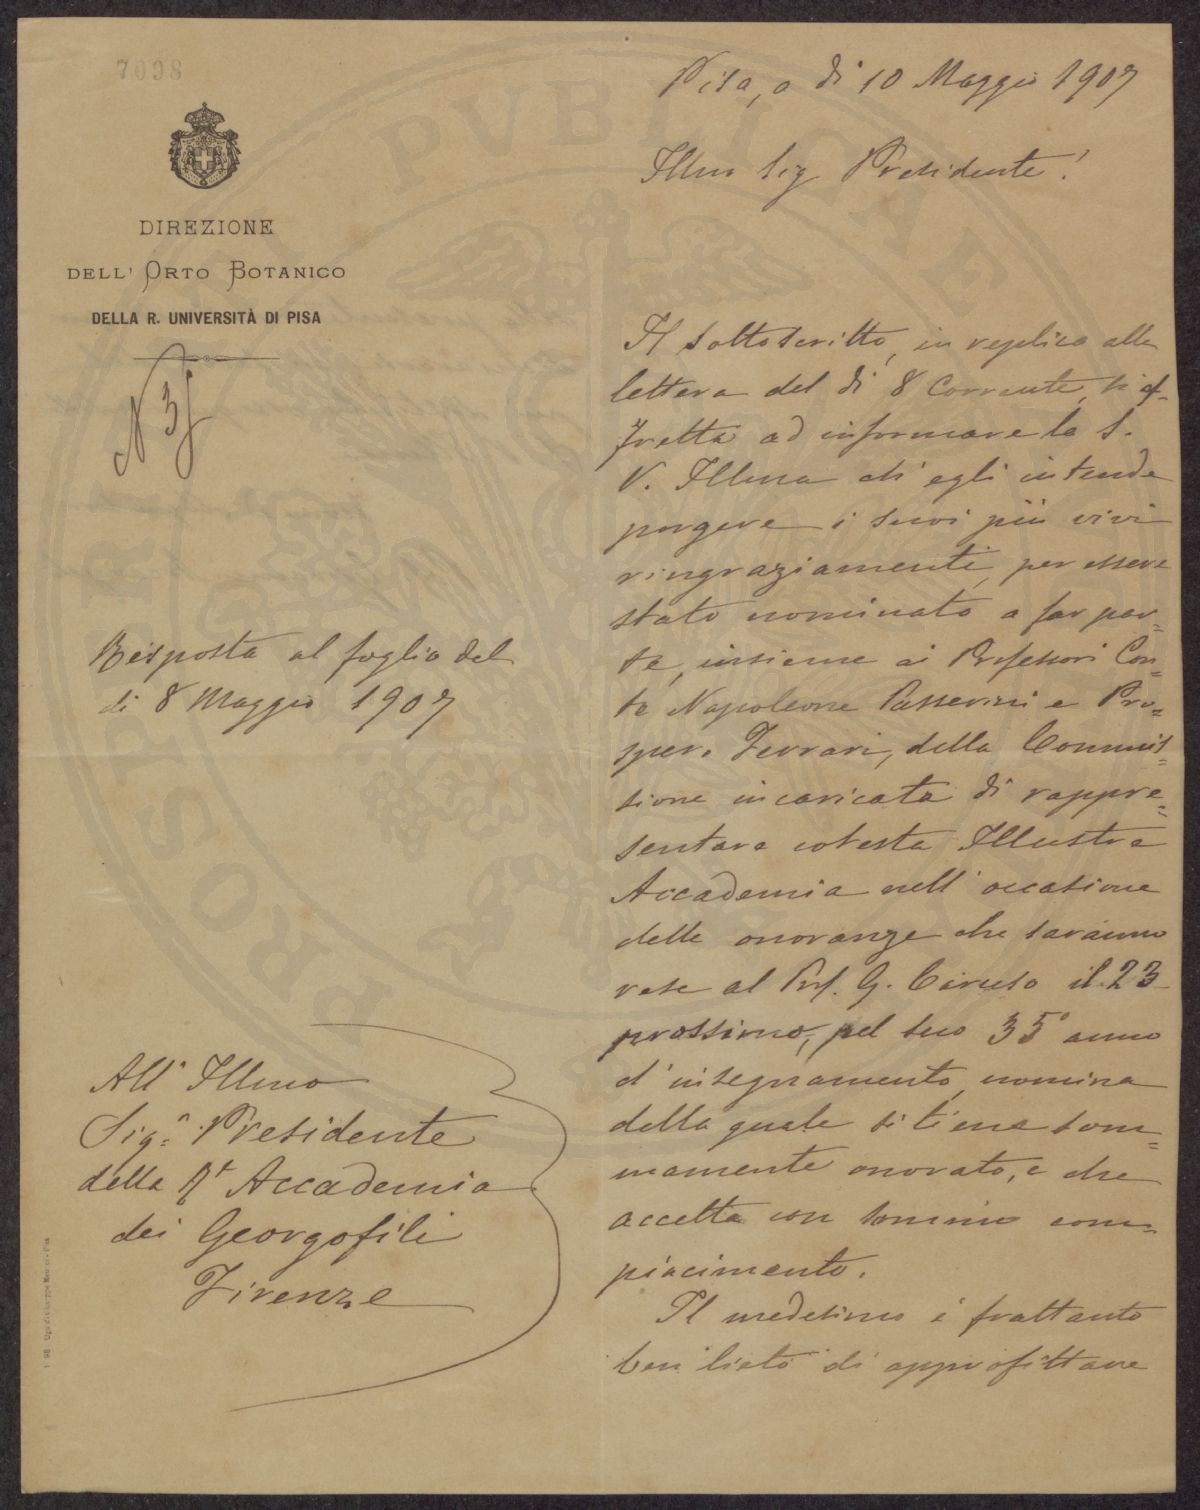 7098
DIREZIONE
DELL' ORTO BOTANICO
DELLA R. UNIVERSITÀ DI PISA
N 35
Risposta al foglio del
di 8 Maggio 1907
All' Illmo
Sigr. Presidente
della Rt Accademia
dei Georgofili
Firenze
Pisa, a dì 10 Maggio 1907
Illmo Sig Presidente!
Il sottoscritto, in replica alla
lettera del dì 8 Corrente, si af=
fretta ad informare la S.
V. Illma ch' egli intende
porgere i suoi più vivi
ringraziamenti, per essere
stato nominato a far par=
te, insieme ai Professori Con=
te Napoleone Passerini e Pro=
spero Ferrari, della Commis=
sione incaricata di rappre=
sentare cotesta Illustre
Accademia nell' occasione
delle onoranze che saranno
rese al Prof. G. Caruso il 23
prossimo, pel suo 35° anno
d' insegnamento, nomina
della quale si tiene som=
mamente onorato, e che
accetta con sommo com=
piacimento.
Il medesimo è frattanto
ben lieto di approfittare
PVBLICAE
PROSPERITATIS